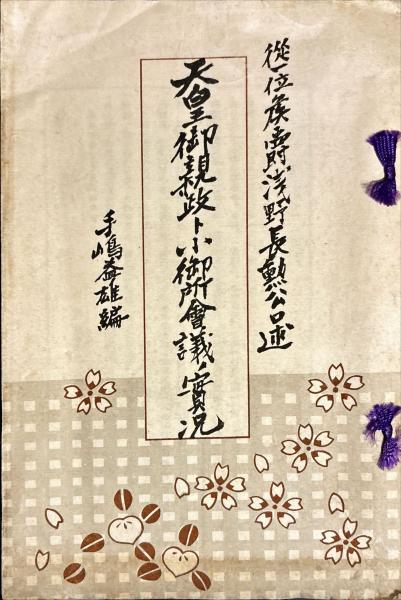 從一位侯爵淺野長勲公口述
天皇御親政ト小御所會議ノ實况
手嶋益雄編